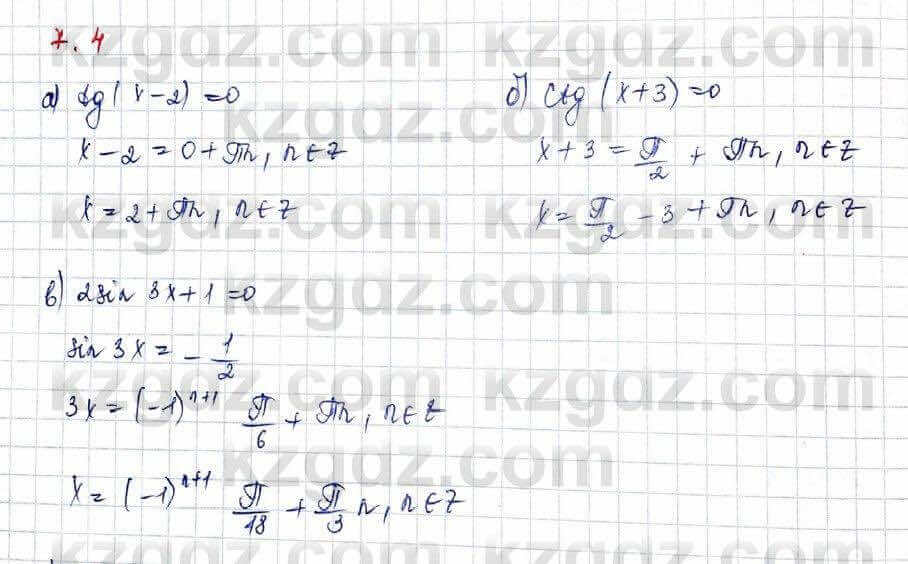 7.4
а) tg(x-2)=0
x-2=0+πn, n∈Z
x=2+πn, n∈Z
б) ctg(x+3)=0
x+3=π/2+πn, n∈Z
x=π/2-3+πn, n∈Z
в) 2sin 3x+1=0
sin 3x=-1/2
3x=(-1)^{n+1} π/6+πn, n∈Z
x=(-1)^{n+1} π/18+π/3 n, n∈Z
kzgdz.com kzgdz.com
kzgdz.com
kzgdz.com kzgdz.com
kzgdz.com
kzgdz.com
kzgdz.com kzgdz.com
kzgdz.com
kzgdz.com kzgdz.com